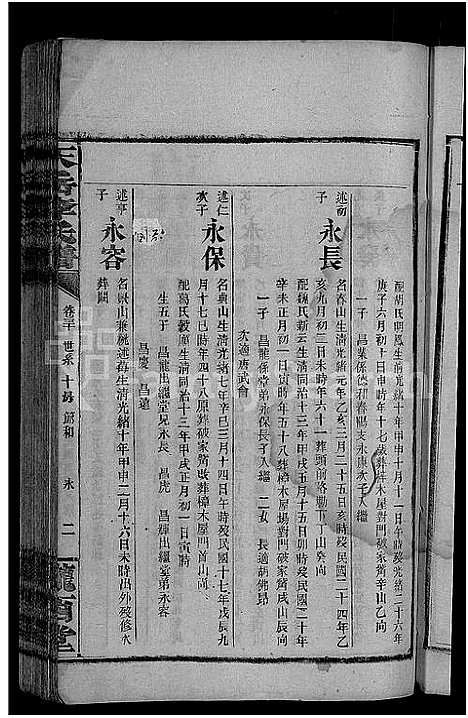 配胡氏明鳳生清光緒十年甲申十月十一日午時歿光緒二十六年
庚子六月初十日申時年十七歲葬樟木屋對門破家簣辛山乙向
一子 昌業係德初春賜支永康次子入繼
述南子 永長
名春山生清光緒元年乙亥三月二十五日亥時歿民國二十四年乙
亥九月初三日未時年六十一葬頭前洛
山癸向
配魏氏新云生清同治十三年甲戌五月十五日卯時歿民國二十年
辛未正月初一日寅時年五十八葬樟木屋場對門破家簣戌山辰向
一子 昌龍係堂弟永保長子入繼 二女 長適胡佛昂
次適唐武會
述仁次子 永保
名典山生清光緒七年辛巳三月十四日午時歿民國十七年戊辰九
月十七巳時年四十八原葬破家簣改葬樟木屋門首山
配葛氏穀
生清同治十三年甲戌正月初一日寅時
生五子 昌龍出繼堂兄永長 昌虎 昌輝出繼堂弟永容
昌慶 昌達
述亨子 永容
名泉山
生清光緒十年甲申二月十六日未時出外歿修水
葬
卷三十 世系
永
二
隴西堂